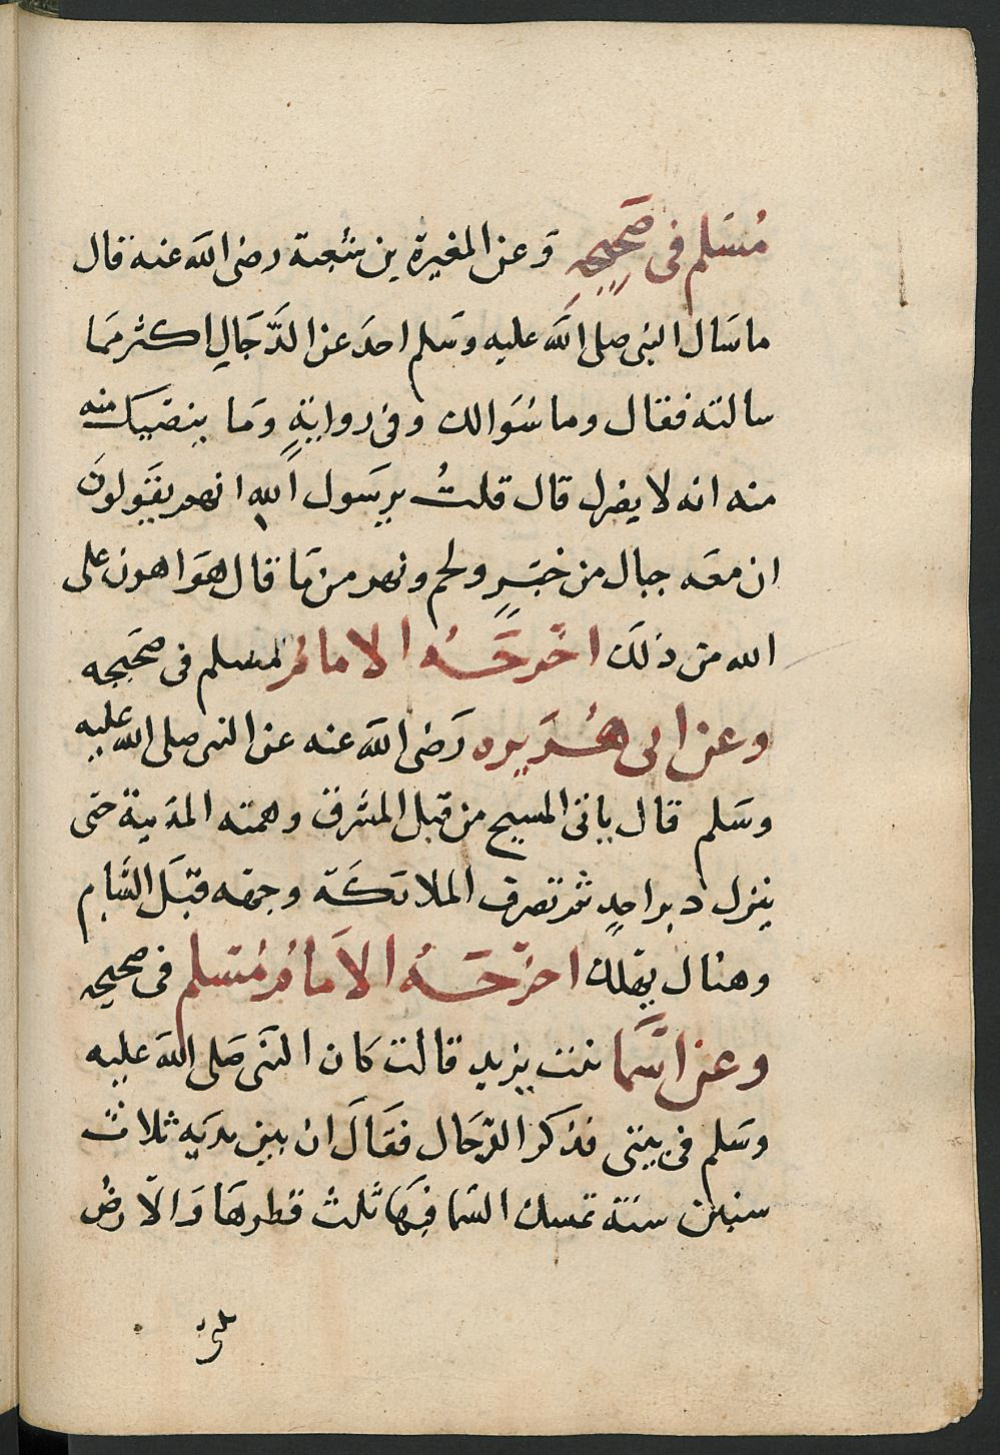 مُسَلم فى صَحِيحِه وَعن المغيرة بن شعبة رضى الله عنه قال
ما سَال النبى صلى الله عليه وسَلم احدَ عن الدَّجَالِ اكثر مَما
سالته فقال وما سُوَالك وفى روايةٍ وَما ينصيك منه
منه انه لا يضرك قال قلتُ يرسَول الله انهم يقَولونَ
ان معَه جبال من خبَزٍ ولحم ونهر من مَا قال هوَ اهون على
الله من ذلكَ اخرجَهُ الامامُ مسلم فى صحَيحه
وعن ابى هُرَيره رَضى الله عنه عن النبى صلى الله عليه
وسَلم قال ياتى المسيح من قبل المشرق وهمته المدَينة حتى
ينزل دبر احدٍ ثم تصرف الملائكَة وجهه قبَل الشام
وهنال يهلك اخرّجَهُ الاَمامُ مُسَلم فى صحيحه
وعن اسَّما بنت يزيد قالت كان النبَى صَلى الله عليه
وسَلم فى بيتى فذكَر الدّجَال فقَالَ ان بين يديَه ثلاثُ
سنين سَنَة تمسك السَّما فيهَا ثلث قطرهَا وَالاّرضُ